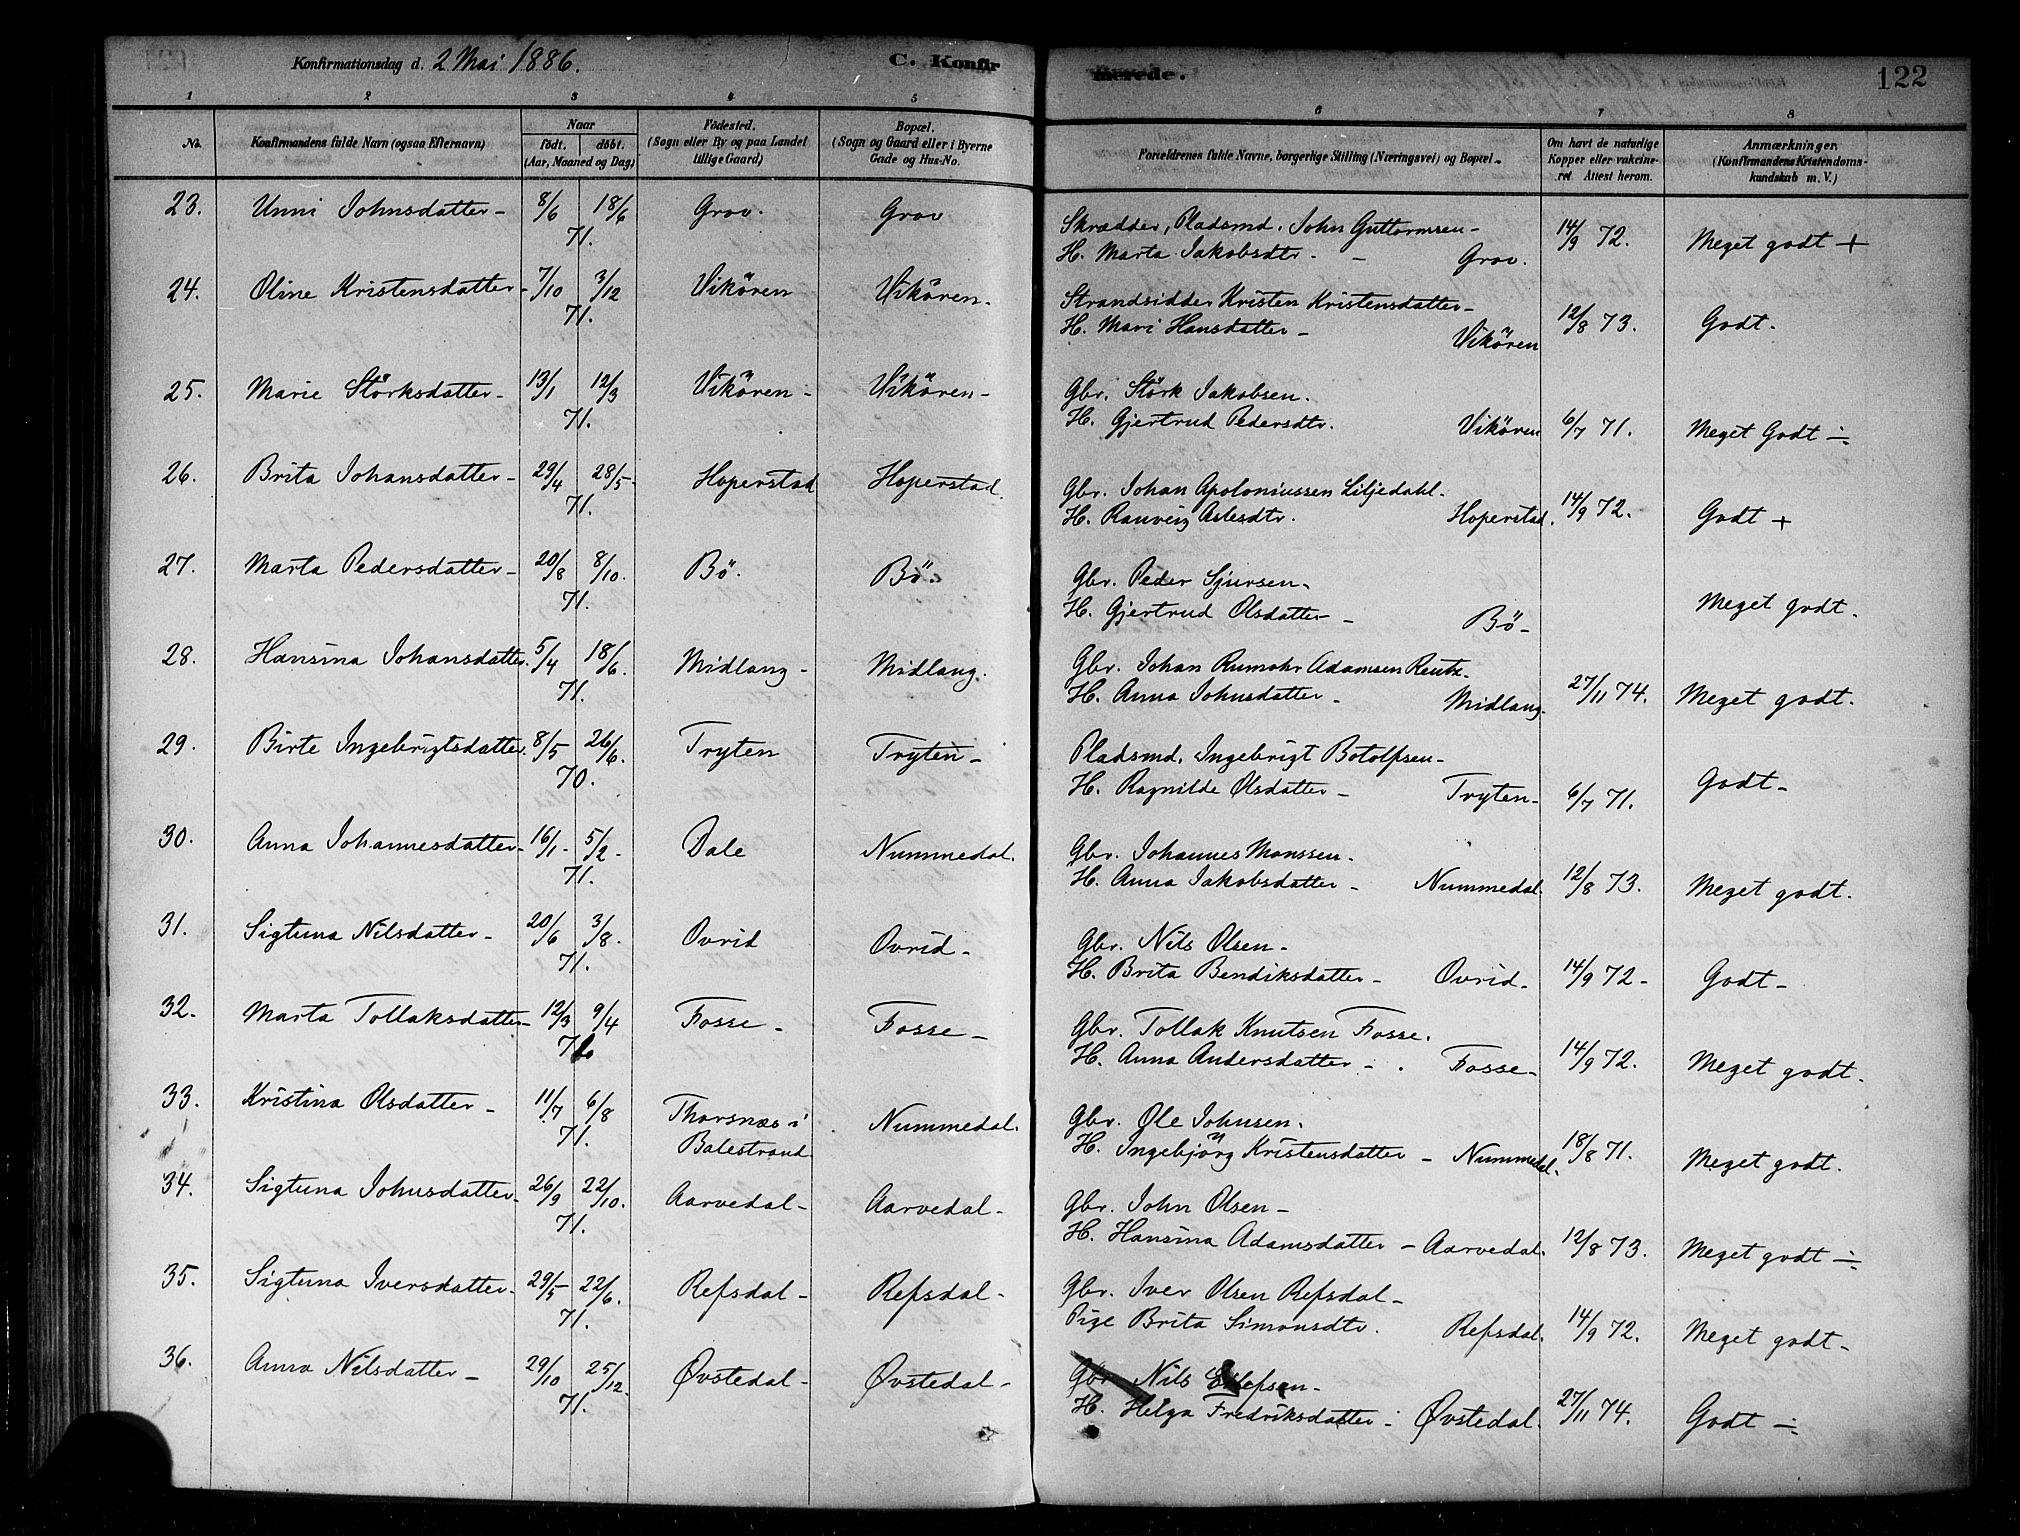 Konfirmationsdag d. 2 Mai 1886.
C. Konfirmerede.
122
1 2 3 4 5 6 7 8
No. Konfirmandens fulde Navn (ogsaa Efternavn) Naar født. døbt. (Aar, Maaned og Dag) Fødested. (Sogn eller By og paa Landet tillige Gaard) Bopæl. (Sogn og Gaard eller i Byerne Gade og Hus-No. Forældrenes fulde Navne, borgerlige Stilling (Næringsvei) og Bopæl. Om havt de naturlige Kopper eller vakcineret Attest herom. Anmærkninger. (Konfirmandens Kristendomskundskab m. V.)
23. Unni Johnsdatter - 8/6 18/6 71. Grov. Grov
Skrædder, Pladsmd. John Guttormsen -
H. Marta Jakobsdtr. - Grov. 14/9 72. Meget godt +
24. Oline Kristensdatter - 7/10 3/12 71. Vikören Vikören.
Strandsidder Kristen Kristensdatter -
H. Mari Hansdatter - Vikören 12/8 73. Godt.
25. Marie Störksdatter - 13/1 12/3 71. Vikören - Vikören -
Gbr. Störk Jakobsen.
H. Gjertrud Pedersdtr. Vikören 6/7 71. Meget Godt ÷
26. Brita Johansdatter - 29/4 28/5. 71. Hoperstad Hoperstad.
Gbr. Johan Apoloniussen Liljedahl.
H. Ranveig Aslesdtr. Hoperstad. 14/9 72. Godt +
27. Marta Pedersdatter - 20/8 8/10. 71. Bö. Bö.
Gbr. Peder Sjursen.
H. Gjertrud Olsdatter - Bö - Meget godt.
28. Hansina Johansdatter. 5/4 18/6. 71. Midlang - Midlang.
Gbr. Johan Rumohr Adamsen Rentz.
H. Anna Johnsdatter - Midlang. 27/11 74. Meget godt.
29. Birte Ingebrigtsdatter. 8/5 26/6. 70. Tryten Tryten -
Pladsmd. Ingebrigt Botolfsen -
H. Ragnilde Olsdatter - Tryten - 6/7 71. Godt -
30. Anna Johannesdatter - 16/1 - 5/2 - 71. Dale Nummedal.
Gbr. Johannes Monssen.
H. Anna Jakobsdatter - Nummedal. 12/8 73. Meget godt.
31. Sigtuna Nilsdatter - 20/6 3/8. 71. Ovrid Ovrid -
Gbr. Nils Olsen -
H. Brita Bendiksdatter - Ovrid. 14/9 72 - Godt -
32. Marta Tollaksdatter - 12/3 9/4 Fosse - Fosse -
Gbr. Tollak Knutsen Fosse.
H. Anna Andersdatter - . Fosse - 14/9 72. Meget godt.
33. Kristina Olsdatter - 11/7 6/8 71. Thorsnæs i Balestrand Nummedal.
Gbr. Ole Johnsen.
H. Ingebjörg Kristensdatter - Nummedal. 18/8 71. Meget godt.
34. Sigtuna Johnsdatter - 26/9 22/10. 71. Aarvedal - Aarvedal -
Gbr. John Olsen -
H. Hansina Adamsdatter - Aarvedal. 12/8 73. Meget godt ÷
35. Sigtuna Iversdatter - 29/5 22/6. 71. Refsdal - Refsdal -
Gbr. Iver Olsen Refsdal -
Pige Brita Simonsdtr. Refsdal. 14/9 72. Meget godt -
36. Anna Nilsdatter - 29/10 25/12. 71. Øvstedal - Øvstedal -
Gbr. Nils Ellefsen -
H. Helga Fredriksdatter - Øvstedal. 27/11 74. Godt ÷